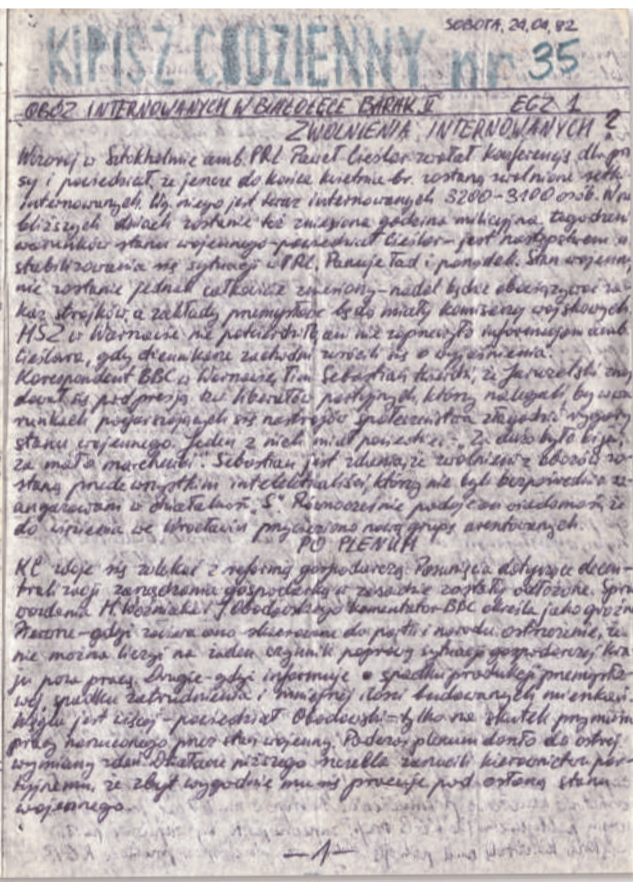 SOBOTA, 24,04,82
KIPISZ CODZIENNY nr 35
OBÓZ INTERNOWANYCH W BIAŁOŁĘCE BARAK II EGZ 1
ZWOLNIENIA INTERNOWANYCH ?
Wczoraj w Sztokholmie amb. PRL Paweł Cieślar zwołał konferencję dla pra
sy i powiedział, że jeszcze do końca kwietnia br. zostaną zwolnione setki
internowanych. Wg. niego jest teraz internowanych 3200-3100 osób. W
bliższych dniach zostanie też zniesiona godzina milicyjna. Łagodzen
warunków stanu wojennego - powiedział Cieślar - jest następstwem u
stabilizowania się sytuacji w PRL. Panuje ład i porządek. Stan wojenn
nie zostanie jednak całkowicie zniesiony - nadal będzie obowiązywać za
kaz strajków, a zakłady przemysłowe będą miały komisarzy wojskowych.
MSZ w Warszawie nie potwierdziło, ani nie zaprzeczyło informacjom amb.
Cieślara, gdy dziennikarze zachodni zwrócili się o wyjaśnienia.
Korespondent BBC w Warszawie, Tim Sebastian twierdzi, że Jaruzelski zna
dował się pod presją tzw. liberałów partyjnych, którzy nalegali, by w wa
runkach pogarszających się nastrojów społeczeństwa złagodzić wygory
stanu wojennego. Jeden z nich miał powiedzieć: "Za dużo było kija,
za mało marchewki". Sebastian jest zdania, że zwolnieni z obozów zo-
staną przede wszystkim intelektualiści, którzy nie byli bezpośrednio za-
angażowani w działalność "S". Równocześnie podaje on wiadomość, że
do więzienia we Wrocławiu przywieziono nową grupę aresztowanych.
PO PLENUM
KC zdaje się zwlekać z reformą gospodarczą. Posunięcia dotyczące decen-
tralizacji zarządzania gospodarką w zasadzie zostały odłożone. Spra
wozdania M. Woźniaka i J. Obodowskiego komentator BBC określa jako groźne
Pierwsze - gdyż zawiera ono skierowane do partii i narodu ostrzeżenie, że
nie można liczyć na żaden czynnik poprawy sytuacji gospodarczej kra
ju poza pracą. Drugie - gdyż informuje o spadku produkcji przemysło-
wej, spadku zatrudnienia i mniejszej ilości budowanych mieszkań.
Węgla jest więcej - powiedział Obodowski - tylko na skutek przymusu
pracy narzuconego przez stan wojenny. Podczas plenum doszło do ostrej
wymiany zdań. Działacze niższego szczebla zarzucili kierownictwu par-
tyjnemu, że zbyt wygodnie mu się pracuje pod osłoną stanu
wojennego.
-1-